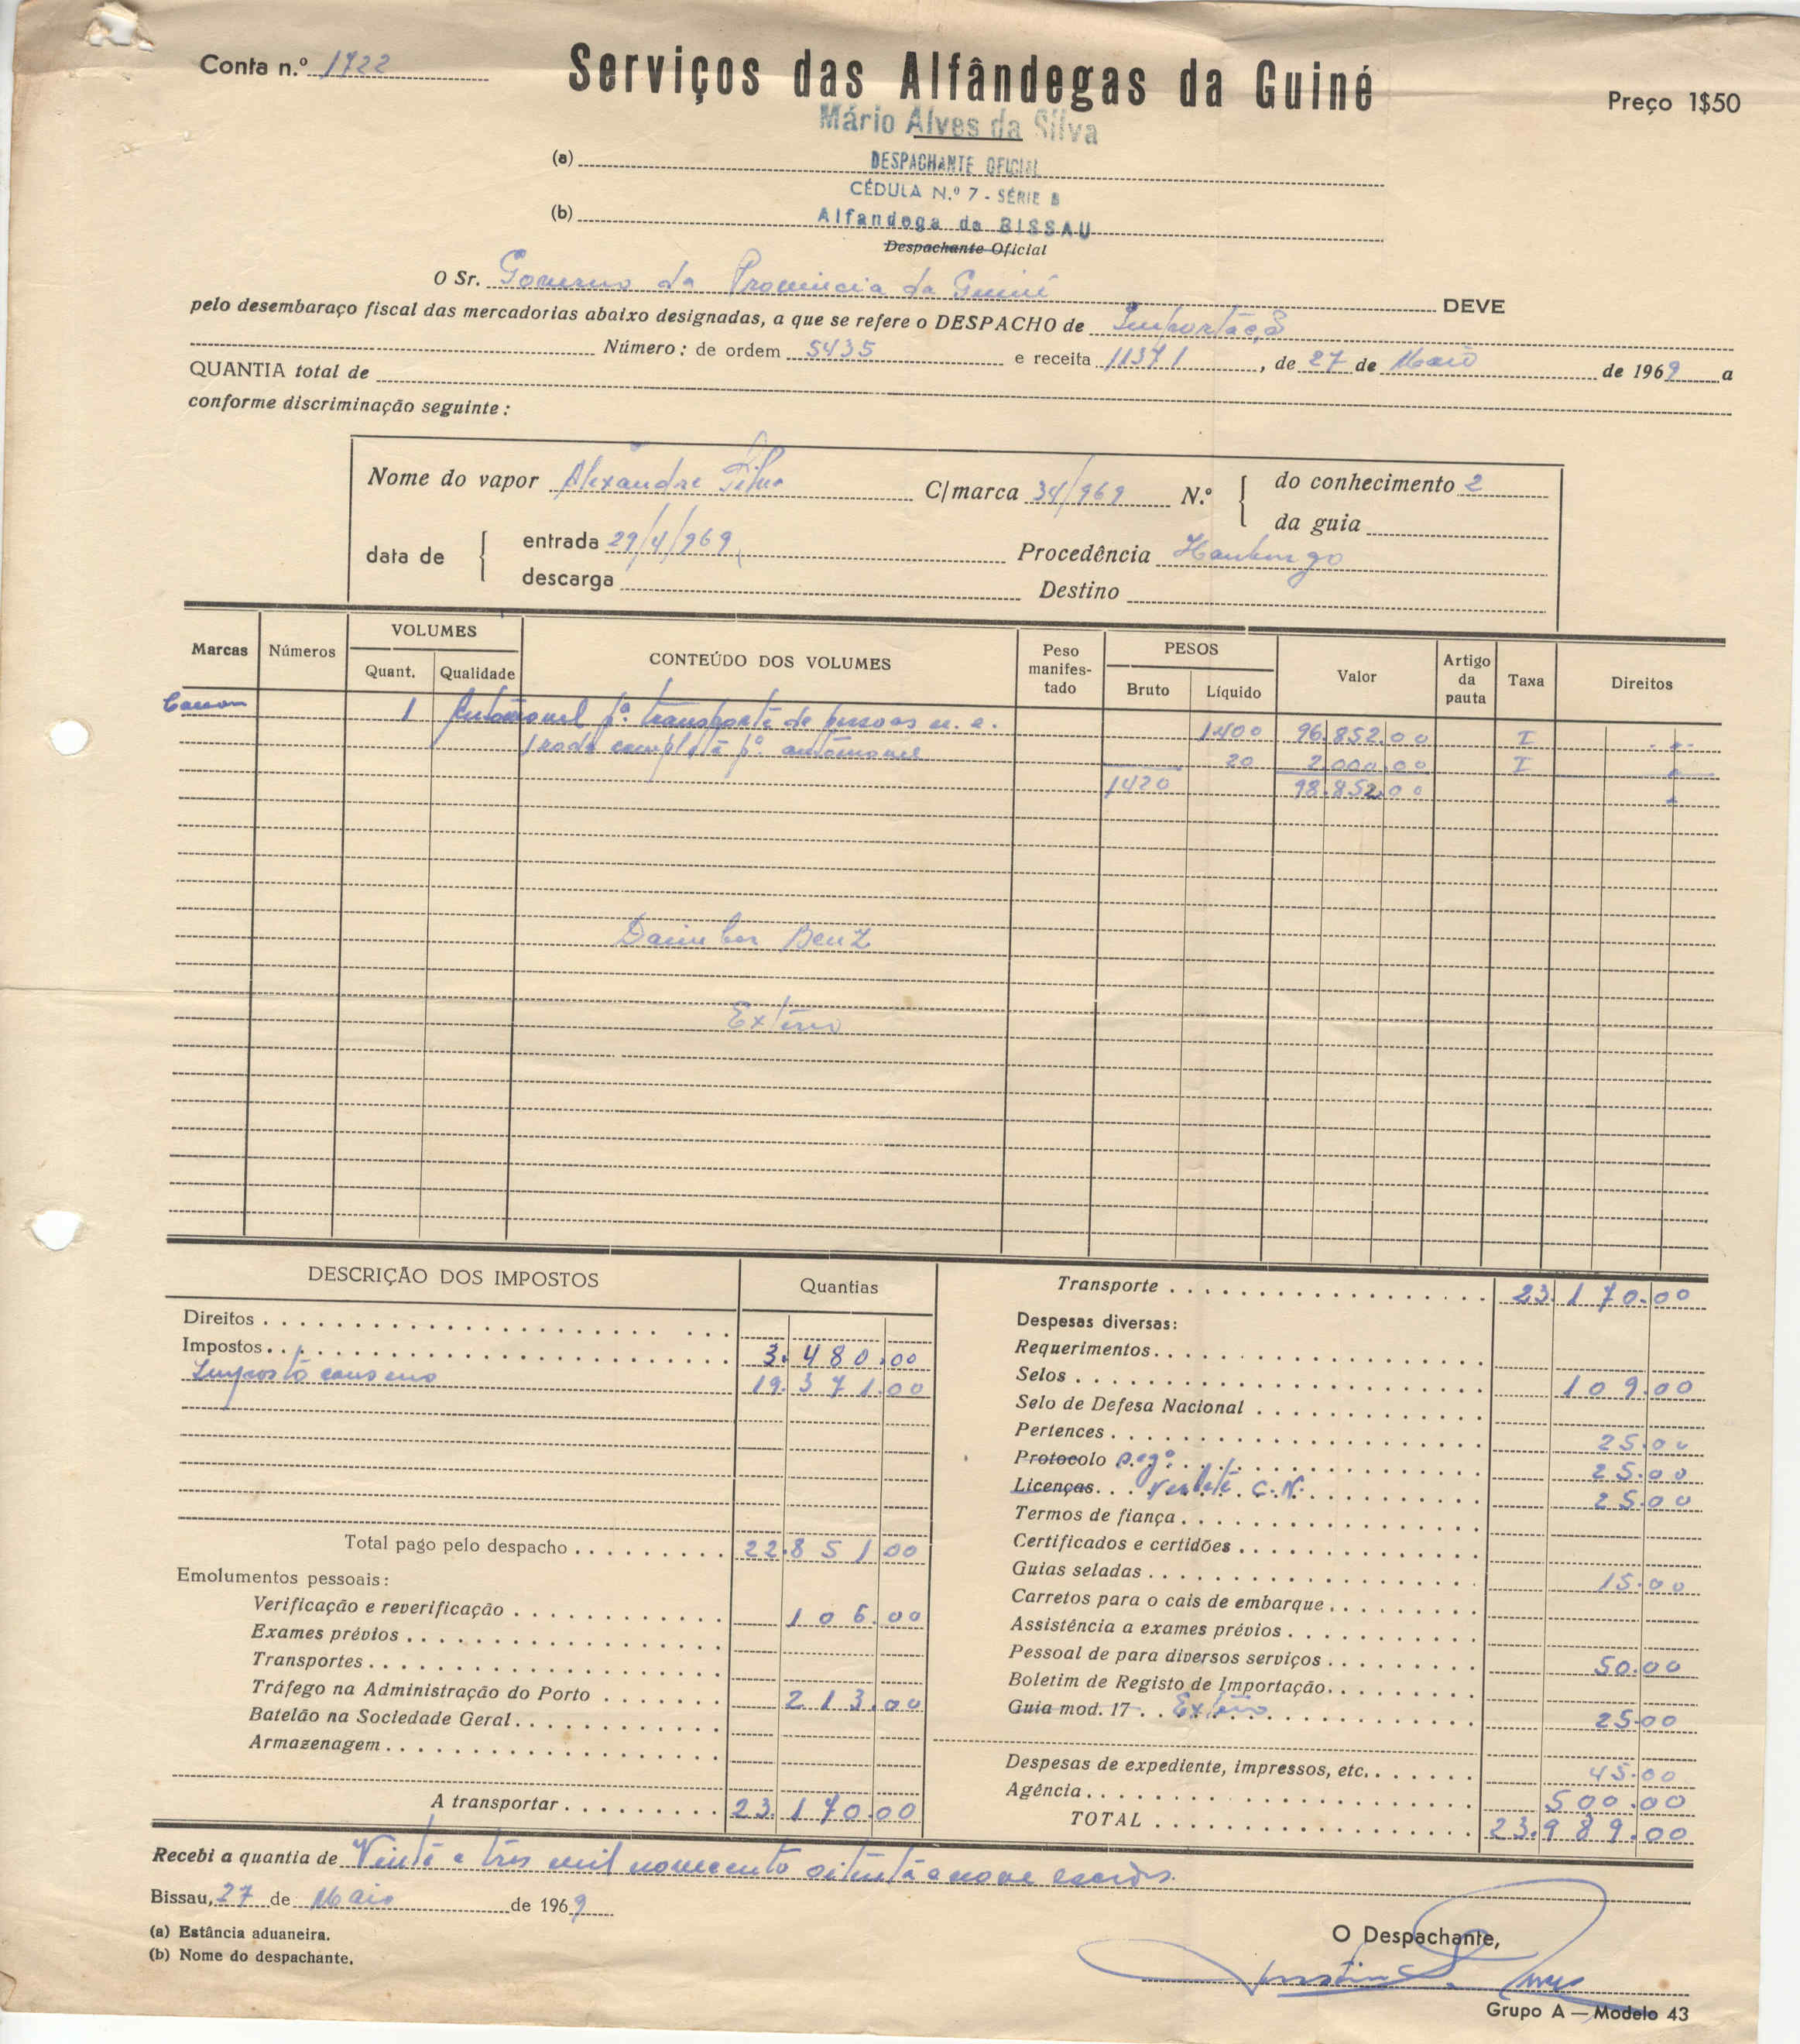 Conta n.º 1722
Serviços das Alfândegas da Guiné
Preço 1$50
Mário Alves da Silva
(a) DESPACHANTE OFICIAL
CÉDULA N.º 7 - SÉRIE B
(b) Alfandega de BISSAU
Despachante Oficial
O Sr. Governo da Provincia da Guiné DEVE
pelo desembaraço fiscal das mercadorias abaixo designadas, a que se refere o DESPACHO de Importação
Número: de ordem 5435 e receita 11371, de 27 de Maio de 1969 a
QUANTIA total de
conforme discriminação seguinte:
Nome do vapor Alexandre Silva C/marca 34/969 N.º do conhecimento 2
da guia
data de entrada 29/4/969 Procedência Hamburgo
descarga Destino
Marcas Números VOLUMES CONTEÚDO DOS VOLUMES Peso manifestado PESOS Valor Artigo da pauta Taxa Direitos
Quant. Qualidade Bruto Líquido
1 Automovel pª. transporte de pessoas n. e. 1400 96.852.00 I
1 roda completa pª. automovel 20 2.000.00 I
1420 98.852.00
Daimler Benz
Extérno
DESCRIÇÃO DOS IMPOSTOS Quantias
Direitos
Impostos 3.480.00
Imposto consumo 19.371.00
Total pago pelo despacho 22.851.00
Emolumentos pessoais:
Verificação e reverificação 106.00
Exames prévios
Transportes
Tráfego na Administração do Porto 213.00
Batelão na Sociedade Geral
Armazenagem
A transportar 23.170.00
Transporte 23.170.00
Despesas diversas:
Requerimentos
Selos 109.00
Selo de Defesa Nacional
Pertences 25.00
Protocolo 25.00
Licenças C.N. 25.00
Termos de fiança
Certificados e certidões
Guias seladas 15.00
Carretos para o cais de embarque
Assistência a exames prévios
Pessoal de para diversos serviços 50.00
Boletim de Registo de Importação
Guia mod. 17 25.00
Despesas de expediente, impressos, etc. 45.00
Agência 500.00
TOTAL 23.989.00
Recebi a quantia de Vinte e três mil novecento oitenta e nove escudos.
Bissau, 27 de Maio de 1969
(a) Estância aduaneira.
(b) Nome do despachante.
O Despachante,
Grupo A — Modelo 43